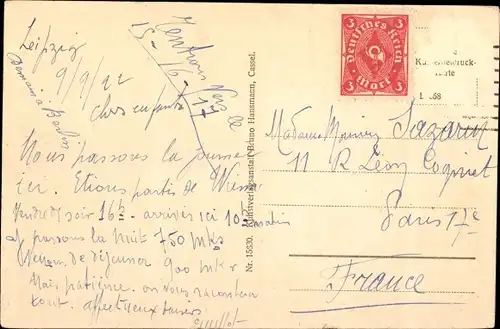 Leipzig
9/9/22
demain à Berlin
15-16-17
Chers enfants
Nous passons la journée
ici. Etions partis de
Vendredi soir 16h arrivés ici 10h matin
et passons la nuit 750 mks
de déjeuner 900 mks
Mais patience. on vous racontera
tout. affectueux baisers
Nr. 15630. Kunstverlagsanstalt Bruno Hausmann, Cassel.
3 3
Deutsches Reich
3 Mark 3
Kupfertiefdruck-
Karte
Madame Lazard
11 R Léon Cogniet
Paris 17e
France